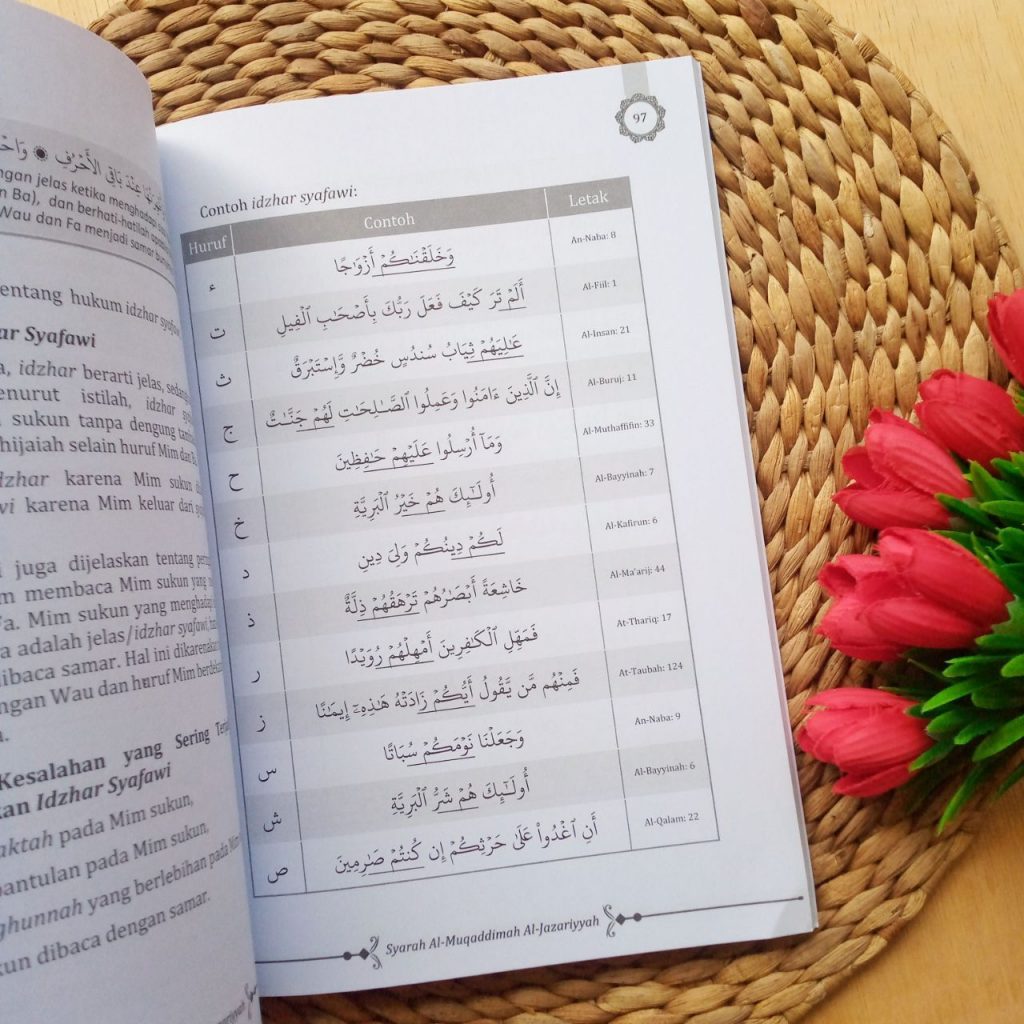 بَاقِي الأَحْرُفِ ۞ وَاحْ
ngan jelas ketika menghadapi
n Ba), dan berhati-hatilah
Wau dan Fa menjadi samar
entang hukum idzhar syafawi
har Syafawi
a, idzhar berarti jelas,
enurut istilah, idzhar
sukun tanpa dengung
hijaiah selain huruf Mim dan Ba
dzhar karena Mim sukun
wi karena Mim keluar dari
i juga dijelaskan tentang
m membaca Mim sukun yang
Fa. Mim sukun yang menghadap
a adalah jelas/idzhar syafawi,
dibaca samar. Hal ini dikarenakan
ngan Wau dan huruf Mim
a.
Kesalahan yang Sering
kan Idzhar Syafawi
aktah pada Mim sukun,
pantulan pada Mim sukun,
ghunnah yang berlebihan pada Mim
kun dibaca dengan samar.
97
Contoh idzhar syafawi:
Huruf Contoh Letak
ء وَخَلَقْنَـٰكُمْ أَزْوَٰجًا An-Naba: 8
ت أَلَمْ تَرَ كَيْفَ فَعَلَ رَبُّكَ بِأَصْحَـٰبِ الْفِيلِ Al-Fiil: 1
ث عَـٰلِيَهُمْ ثِيَابُ سُندُسٍ خُضْرٌ وَإِسْتَبْرَقٌ Al-Insan: 21
ج إِنَّ الَّذِينَ ءَامَنُوا وَعَمِلُوا الصَّـٰلِحَـٰتِ لَهُمْ جَنَّـٰتٌ Al-Buruj: 11
ح وَمَآ أُرْسِلُوا عَلَيْهِمْ حَـٰفِظِينَ Al-Muthaffifin: 33
خ أُولَـٰٓئِكَ هُمْ خَيْرُ الْبَرِيَّةِ Al-Bayyinah: 7
د لَكُمْ دِينُكُمْ وَلِىَ دِينِ Al-Kafirun: 6
ذ خَاشِعَةً أَبْصَـٰرُهُمْ تَرْهَقُهُمْ ذِلَّةٌ Al-Ma'arij: 44
ر فَمَهِّلِ الْكَـٰفِرِينَ أَمْهِلْهُمْ رُوَيْدًا At-Thariq: 17
ز فَمِنْهُم مَّن يَقُولُ أَيُّكُمْ زَادَتْهُ هَـٰذِهِۦٓ إِيمَـٰنًا At-Taubah: 124
س وَجَعَلْنَا نَوْمَكُمْ سُبَاتًا An-Naba: 9
ش أُولَـٰٓئِكَ هُمْ شَرُّ الْبَرِيَّةِ Al-Bayyinah: 6
ص أَنِ اغْدُوا عَلَىٰ حَرْثِكُمْ إِن كُنتُمْ صَـٰرِمِينَ Al-Qalam: 22
Syarah Al-Muqaddimah Al-Jazariyyah